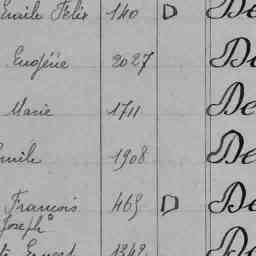 Emile Felix 140 D De
Eugénie 2027 De
Marie 1711 De
Emile 1908 De
Francois 463 D De
Joseph
Ernest 1342 De